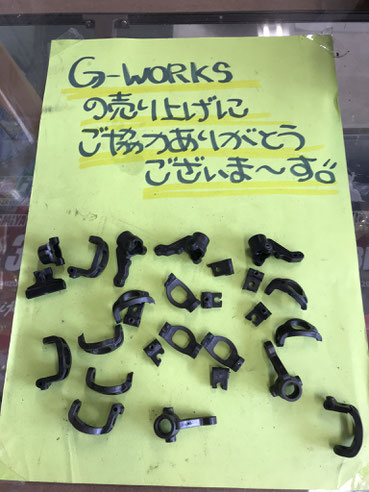 G-WORKS
の売り上げに
ご協力ありがとう
ございま〜す。